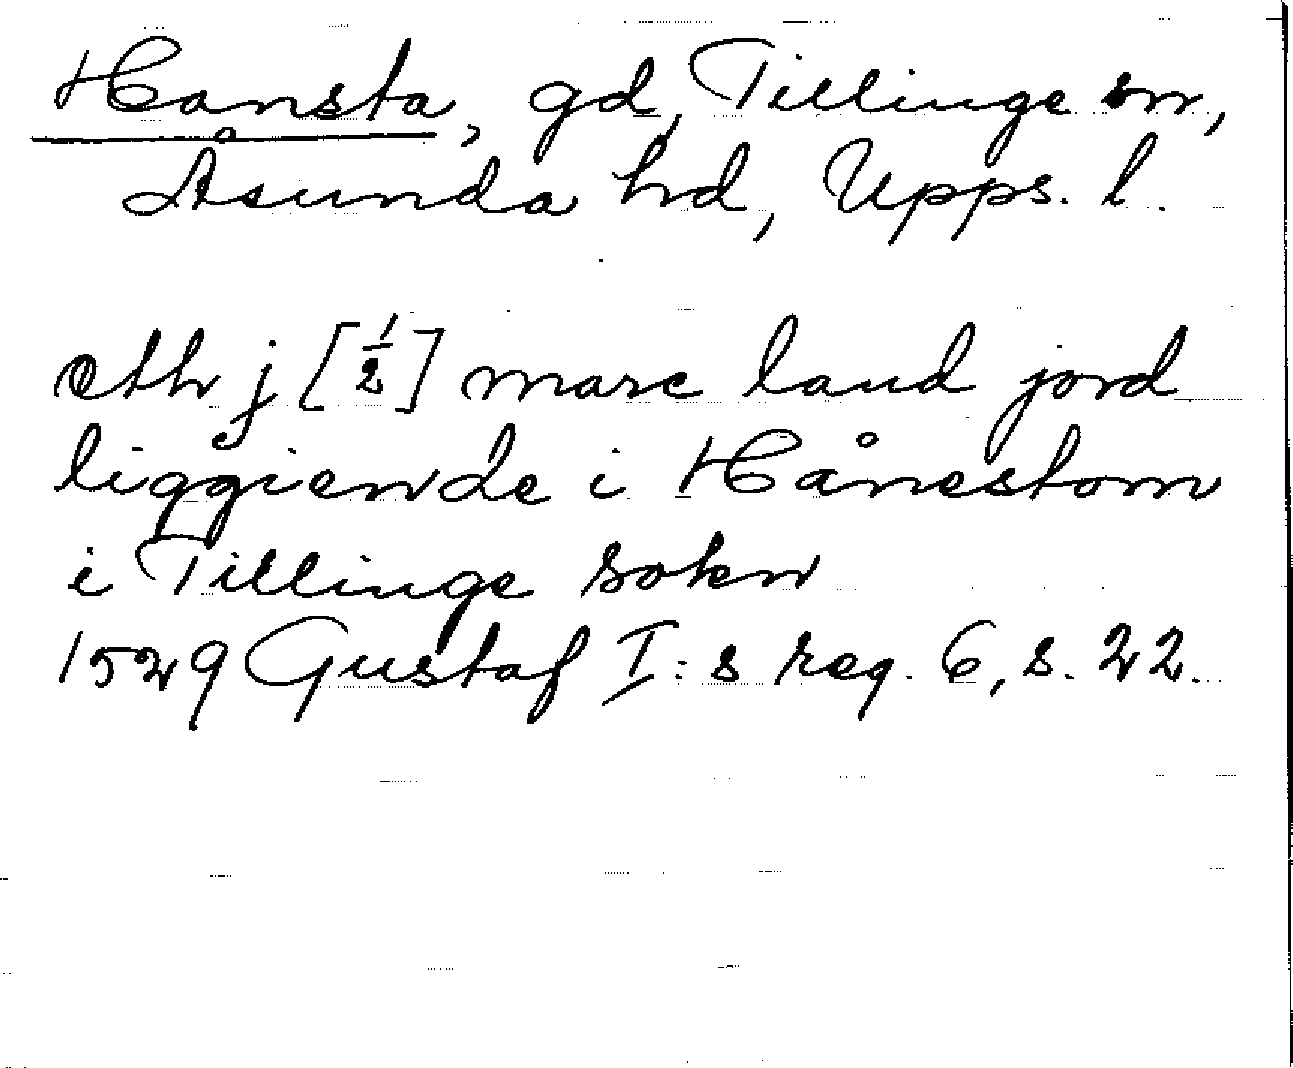 Hansta, gd, Tillinge sn,
Åsunda hd, Upps. l.
eth j [½] marc land jord
liggiende i Hånestom
i Tillinge sokn
1529 Gustaf I:s reg. 6, s. 22.